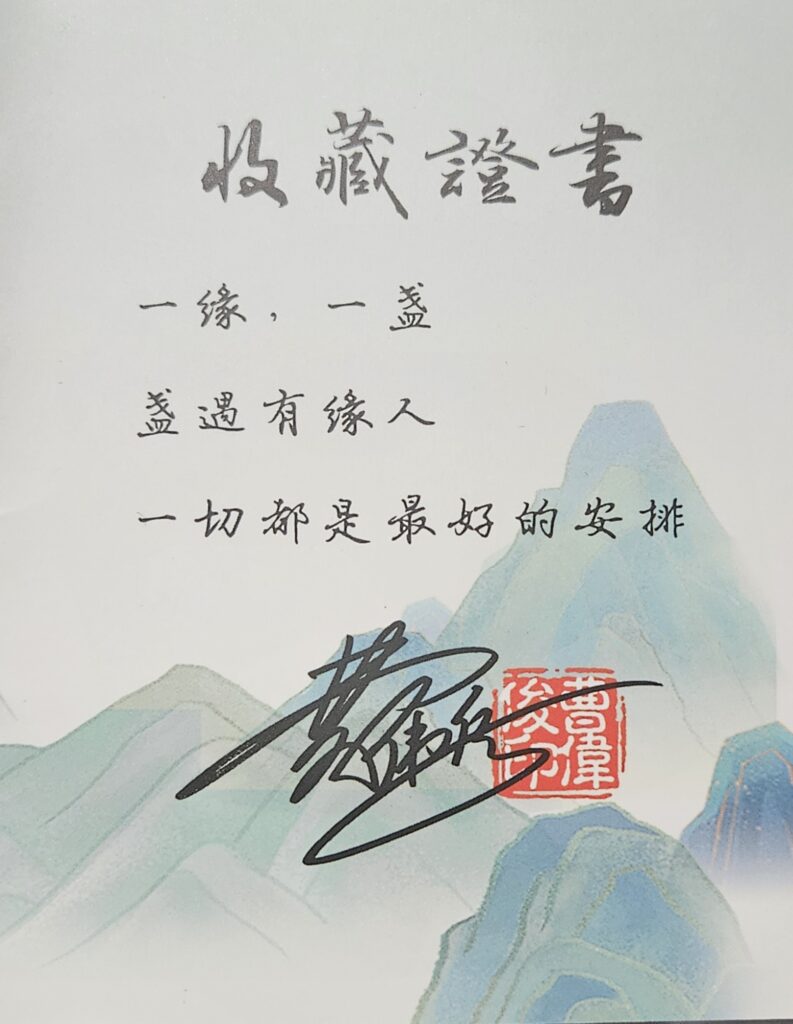 收藏證書
一缘，一盏
盏遇有缘人
一切都是最好的安排
曹偉俊印